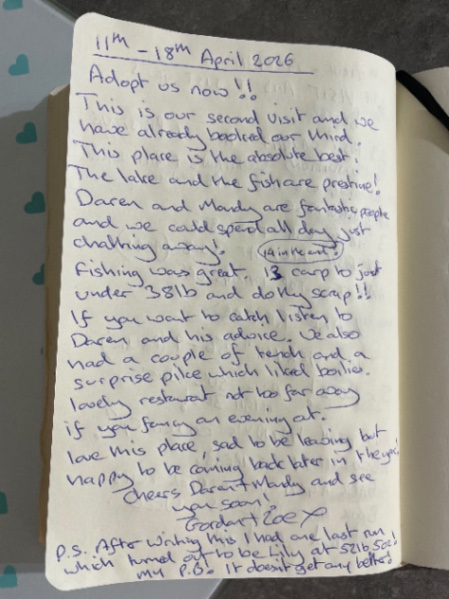 11th - 18th April 2026
Adopt us now!!
This is our second visit and we
have already booked our third.
This place is the absolute best!
The lake and the fish are prestine!
Daren and Mandy are fantastic people
and we could spend all day just
chatting away!
14 in the end!
Fishing was great. 13 carp to just
under 38lb and do thy scrap!!
If you want to catch listen to
Daren and his advice. We also
had a couple of tench and a
surprise pike which liked boilies.
Lovely restaurant not too far away
if you fancy an evening out.
Love this place, sad to be leaving but
happy to be coming back later in the year!
Cheers Daren + Mandy and see
you soon!
Gordon + Zoe X
P.S. After writing this I had one last run
which turned out to be Lily at 52lb 5oz!
my P.B! It doesn't get any better!